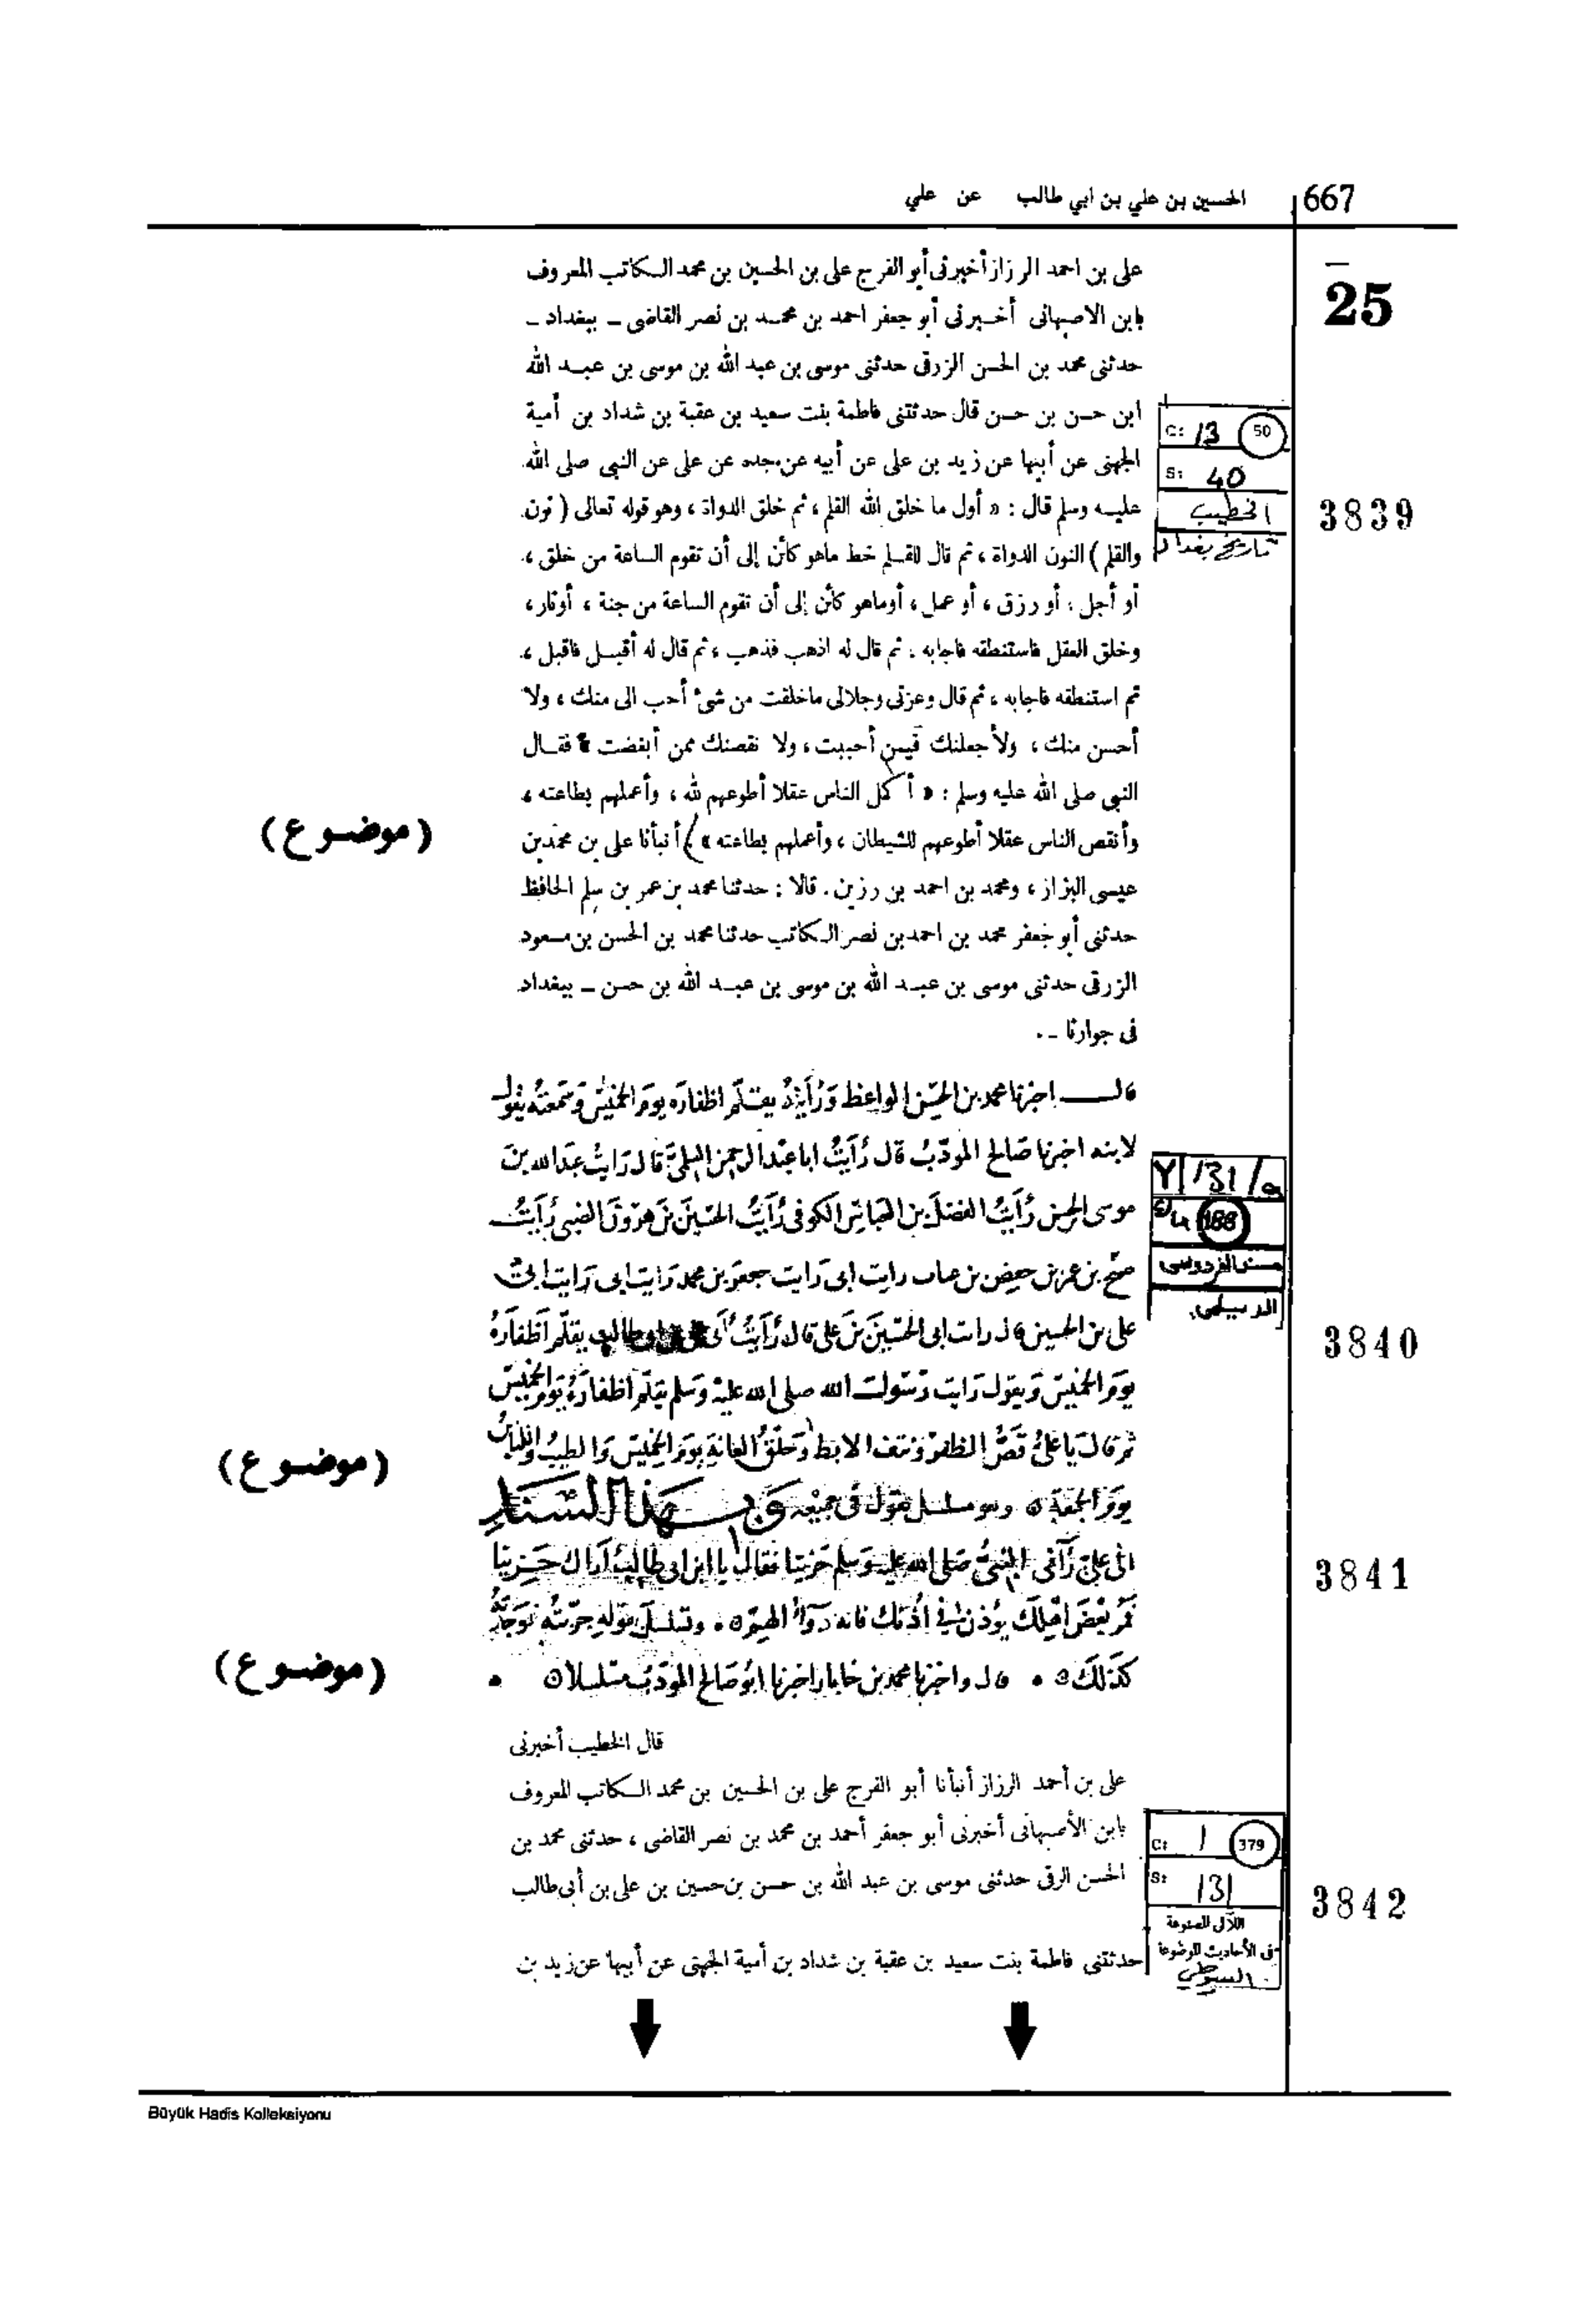 667 الحسين بن علي بن ابي طالب عن علي
25
على بن احمد الرزاز أخبرنى أبو الفرج على بن الحسين بن محمد الكاتب المعروف
بابن الاصبهانى أخبرنى أبو جعفر احمد بن محمد بن نصر القاضى ــ ببغداد ــ
حدثنى محمد بن الحسن الزرقى حدثنى موسى بن عبد الله بن موسى بن عبد الله
ابن حسن بن حسن قال حدثتنى فاطمة بنت سعيد بن عقبة بن شداد بن أمية
C: 13 50
الجهنى عن أبيها عن زيد بن على عن أبيه عن جده عن على عن النبى صلى الله
S: 40
عليه وسلم قال : « أول ما خلق الله القلم ، ثم خلق الدواة ، وهو قوله تعالى ( نون
الخطيب
3839
والقلم ) النون الدواة ، ثم قال للقلم خط ماهو كائن إلى أن تقوم الساعة من خلق ،
تاريخ بغداد
أو أجل ، أو رزق ، أو عمل ، أوماهو كائن إلى أن تقوم الساعة من جنة ، أونار ،
وخلق العقل فاستنطقه فاجابه ، ثم قال له اذهب فذهب ، ثم قال له أقبل فاقبل ،
ثم استنطقه فاجابه ، ثم قال وعزتى وجلالى ماخلقت من شئ أحب الى منك ، ولا
أحسن منك ، ولأجعلنك فيمن أحببت ، ولا نقصنك ممن أبغضت » فقال
النبى صلى الله عليه وسلم : « أكمل الناس عقلا أطوعهم لله ، وأعملهم بطاعته ،
وأنقص الناس عقلا أطوعهم للشيطان ، وأعملهم بطاعته » ) أنبأنا على بن محمد بن
(موضوع)
عيسى البزاز ، ومحمد بن احمد بن رزين . قالا : حدثنا محمد بن عمر بن سلم الحافظ
حدثنى أبو جعفر محمد بن احمد بن نصر الكاتب حدثنا محمد بن الحسن بن مسعود
الزرقى حدثنى موسى بن عبد الله بن موسى بن عبد الله بن حسن ــ ببغداد
فى جوارنا ــ .
قال اخبرنا محمد بن الحسين الواعظ ورأيته يقلم اظفاره يوم الخميس وسمعته يقول
لابنه اخبرنا صالح المودب قال رأيت ابا عبد الرحمن السلمى قال رايت عبد الله بن
Y 131/a
موسى الحسن رأيت الفضل بن العباس الكوفى رأيت الحسين بن هرون الضبى رأيت
188
بن حفص بن رايت ابى رايت جعفر بن محمد رايت ابى رايت ابى
مسند الفردوس
الديلمى
على بن الحسين قال رايت ابى الحسين بن على قال رأيت ابى يقلم اظفاره
3840
يوم الخميس ويقول رايت رسول الله صلى الله عليه وسلم يقلم اظفاره يوم الخميس
ثم قال يا على قص الظفر ونتف الابط وحلق العانة يوم الخميس والطيب واللباس
(موضوع)
يوم الجمعة وهو مسلسل بقول فى جميعه وبهذا السناد
الى على رآنى النبى صلى الله عليه وسلم حزينا فقال يا ابن ابى طالب اراك حزينا
3841
فمر بعض اهلك يوذن فى اذنك فانه دوآء الهم وتسلسل بقوله جربته فوجدته
كذلك قال واخبرنا محمد بن اخبرنا ابو صالح المودب مسلسلا
(موضوع)
قال الخطيب أخبرنى
على بن أحمد الرزاز أنبأنا أبو الفرج على بن الحسين بن محمد الكاتب المعروف
بابن الأصبهانى أخبرنى أبو جعفر أحمد بن محمد بن نصر القاضى ، حدثنى محمد بن
C: 1 379
الحسن الرقى حدثنى موسى بن عبد الله بن حسن بن حسين بن على بن أبى طالب
S: 131
3842
اللآلى المصنوعة
فى الأحاديث الموضوعة
السيوطي
حدثتنى فاطمة بنت سعيد بن عقبة بن شداد بن أمية الجهنى عن أبيها عن زيد بن
Büyük Hadis Kolleksiyonu